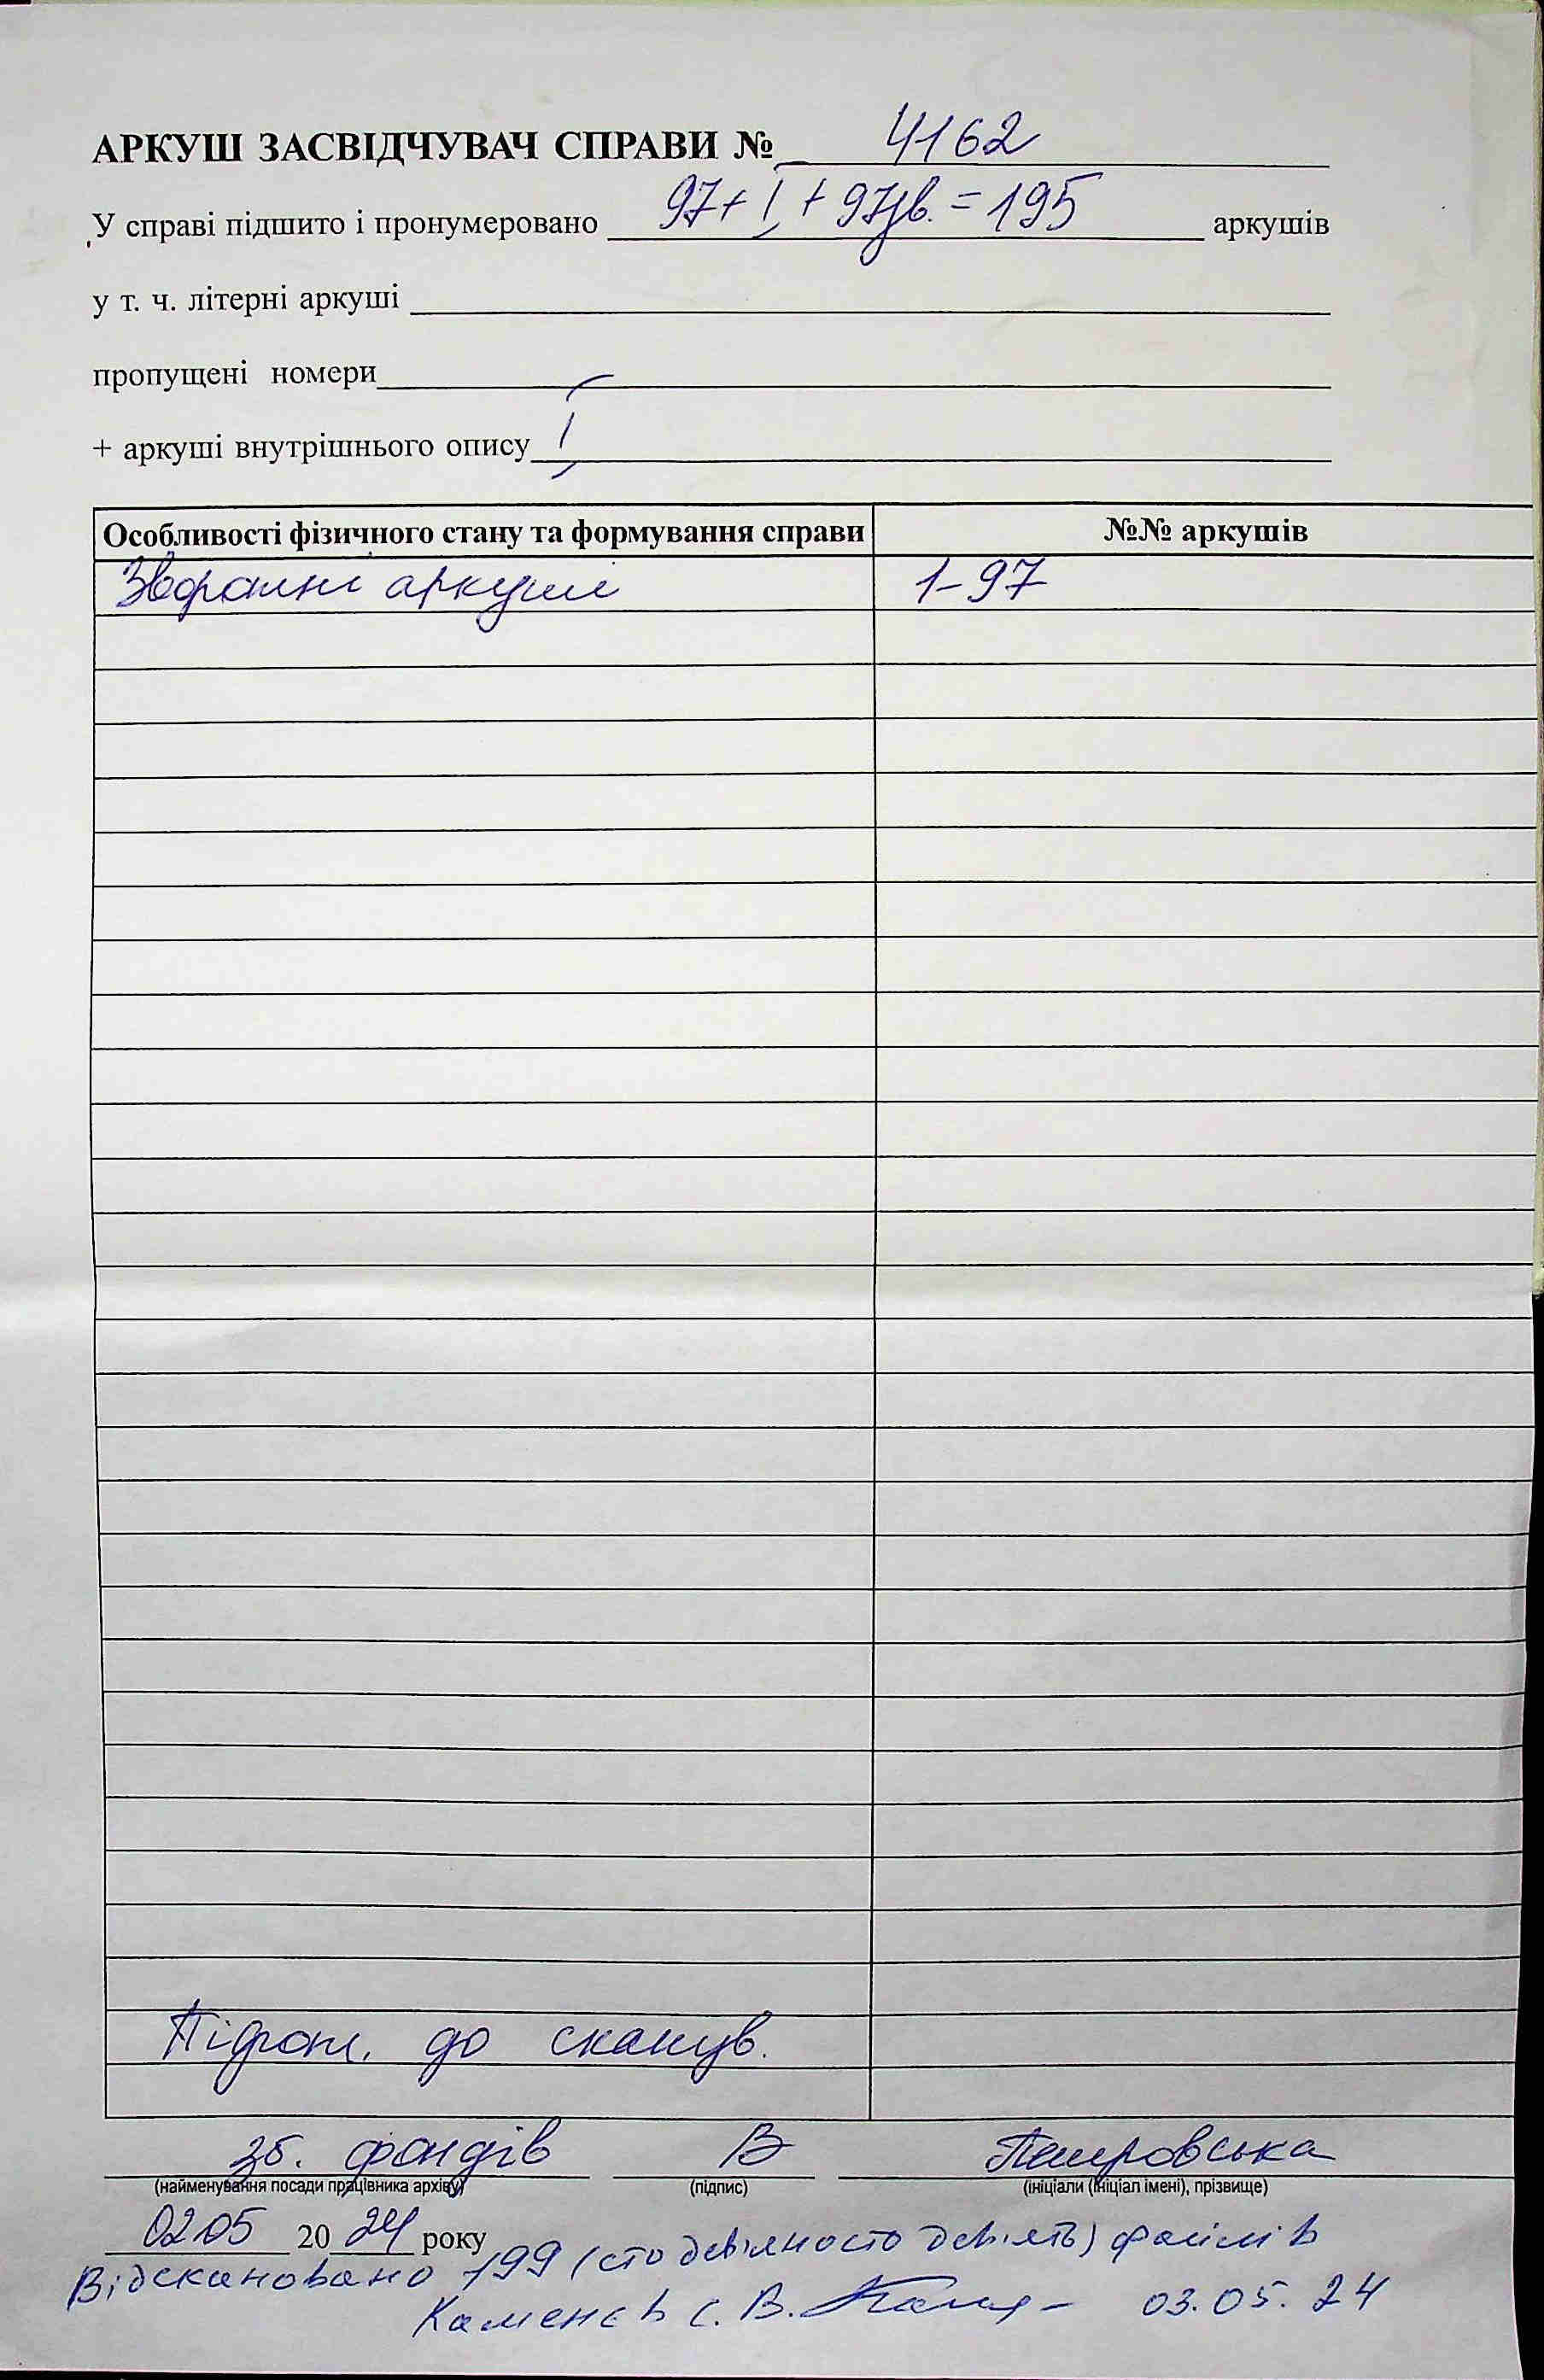 АРКУШ ЗАСВІДЧУВАЧ СПРАВИ № 4162
У справі підшито і пронумеровано 97+I+97зв.=195 аркушів
у т. ч. літерні аркуші
пропущені номери
+ аркуші внутрішнього опису I
Особливості фізичного стану та формування справи №№ аркушів
Зворотні аркуші 1-97
Підгот. до сканув.
зб. фондів В Петровська
(найменування посади працівника архіву) (підпис) (ініціали (ініціал імені), прізвище)
02 05 20 24 року
Відскановано 199 (сто дев'яносто дев'ять) файлів
Каменєв С. В. 03.05.24